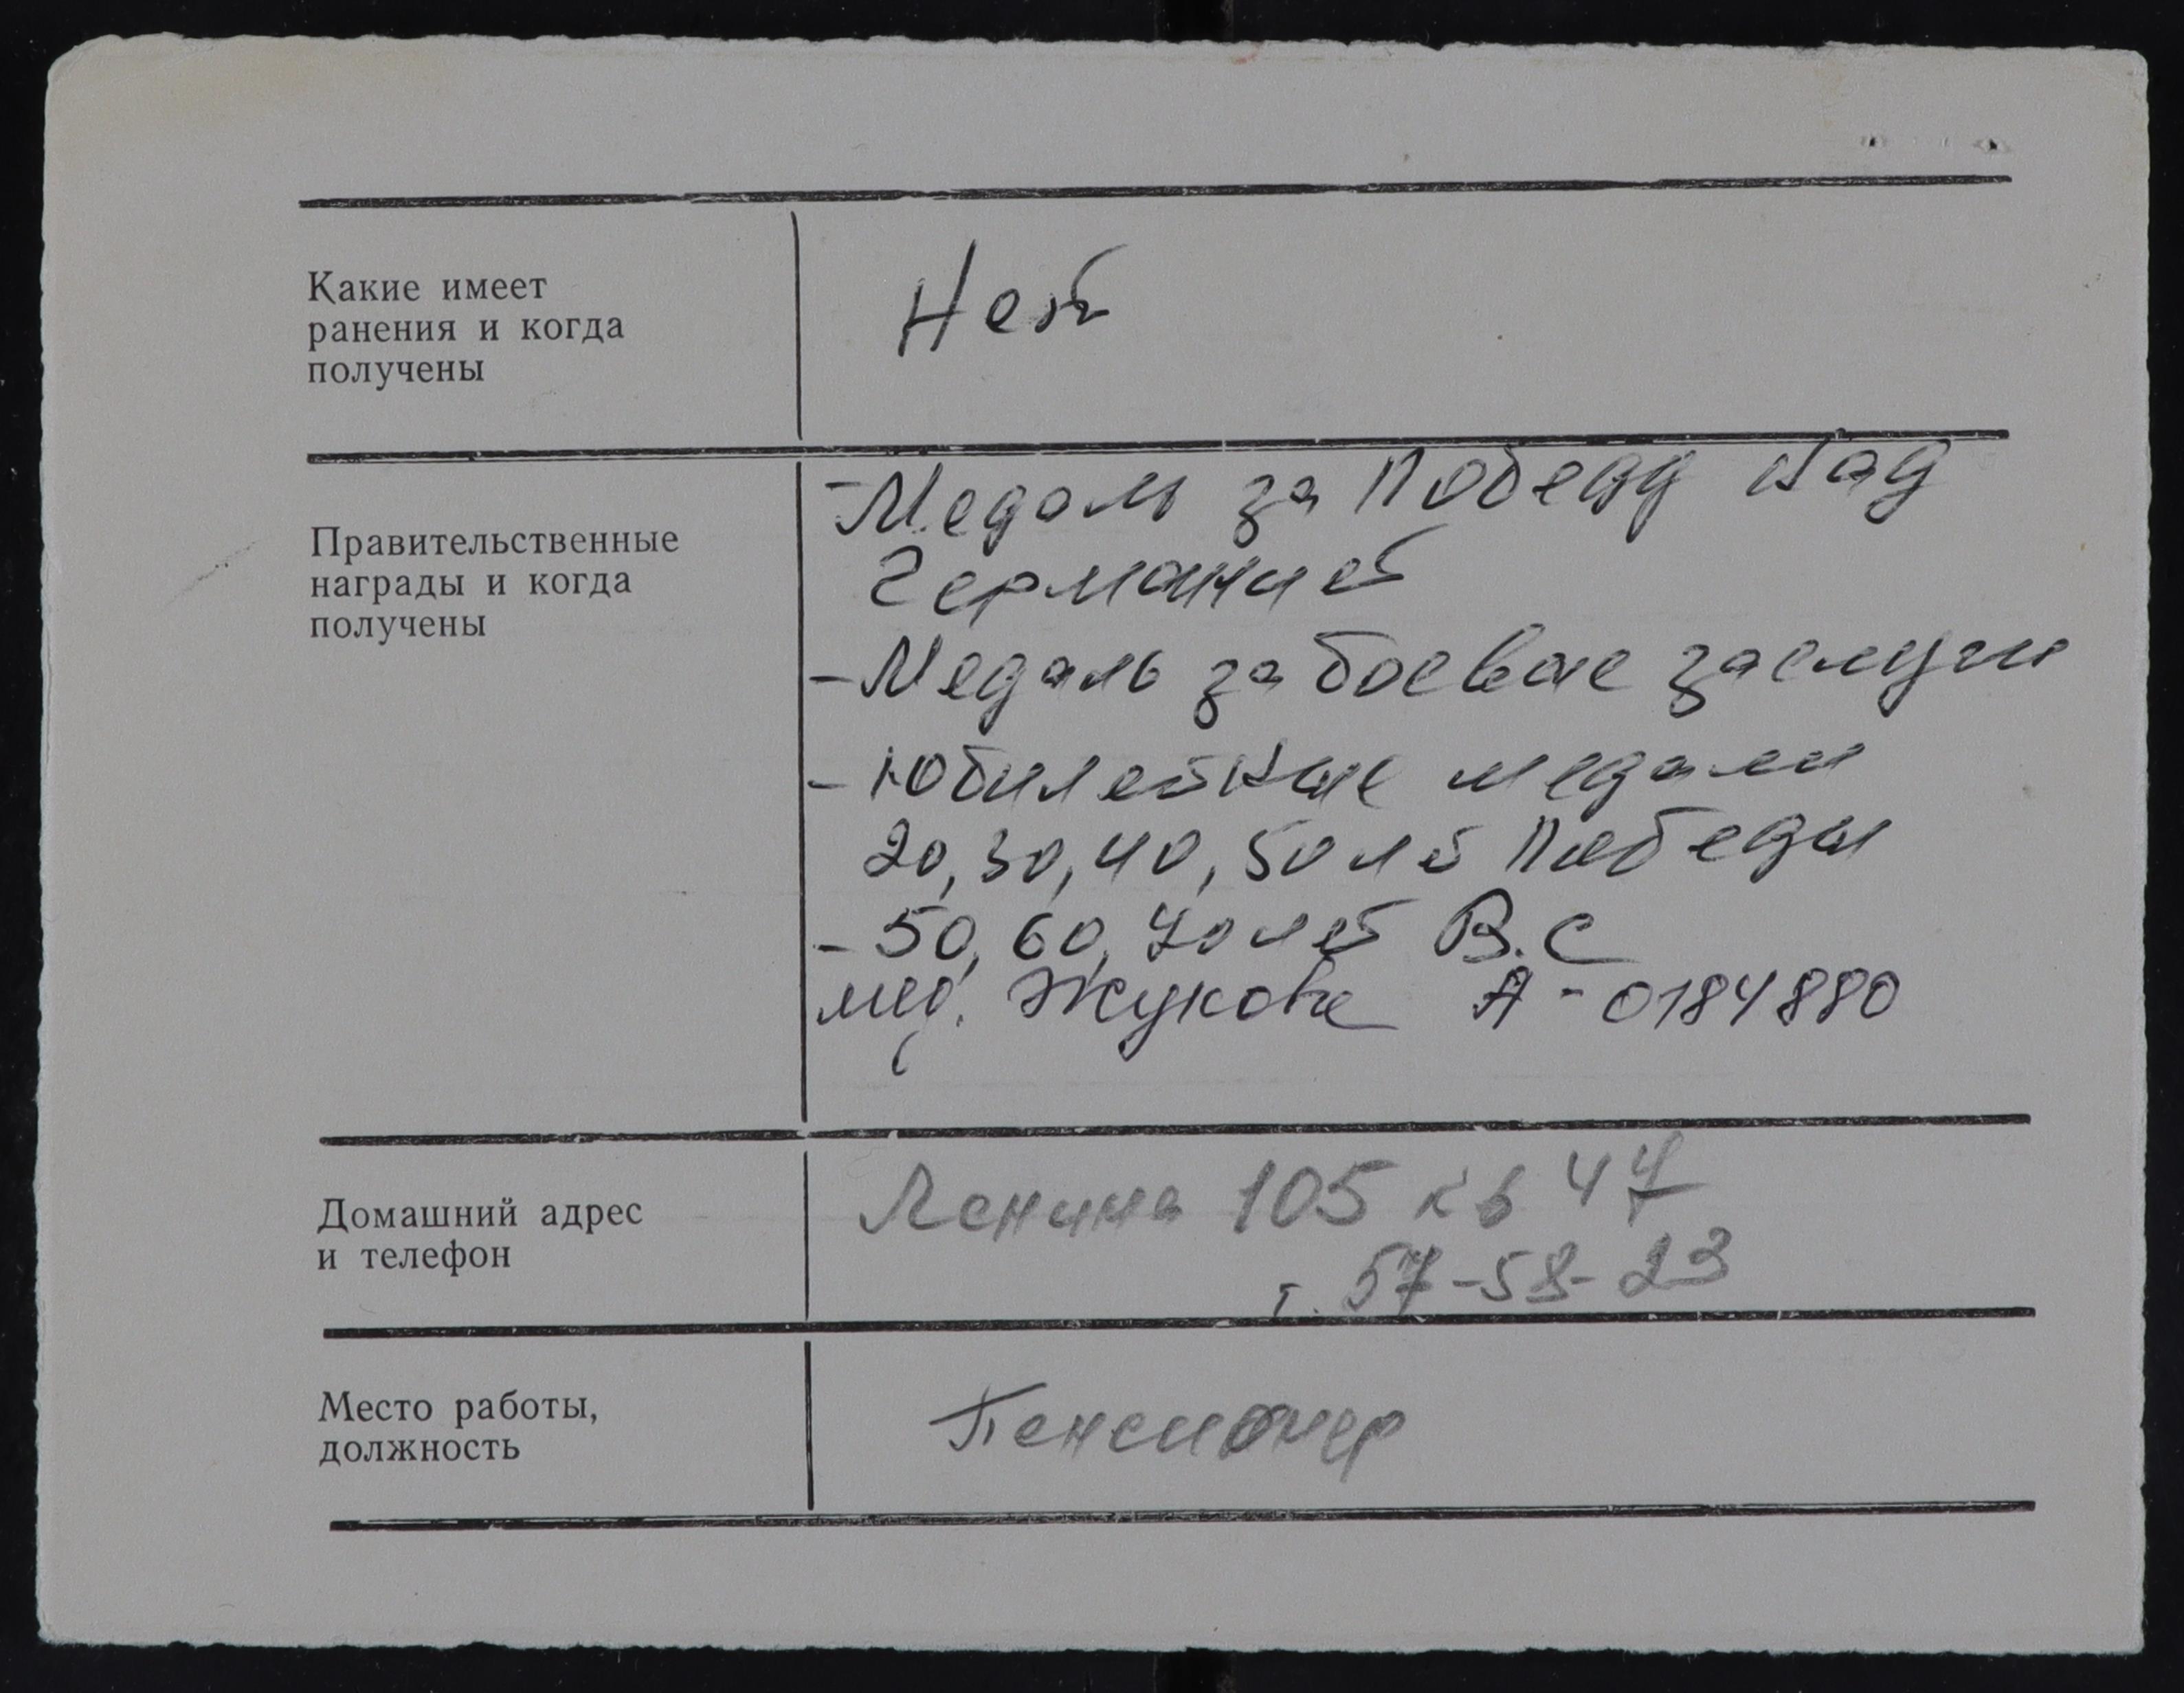 Какие имеет
ранения и когда
получены
Нет
Правительственные
награды и когда
получены
- Медаль за Победу над
Германией
- Медаль за боевые заслуги
- Юбилейные медали
20, 30, 40, 50 лет Победы
- 50, 60, 70 лет В.С
мед. Жукова А - 0184880
Домашний адрес
и телефон
Ленина 105 кв 47
т. 57-58-23
Место работы,
должность
Пенсионер